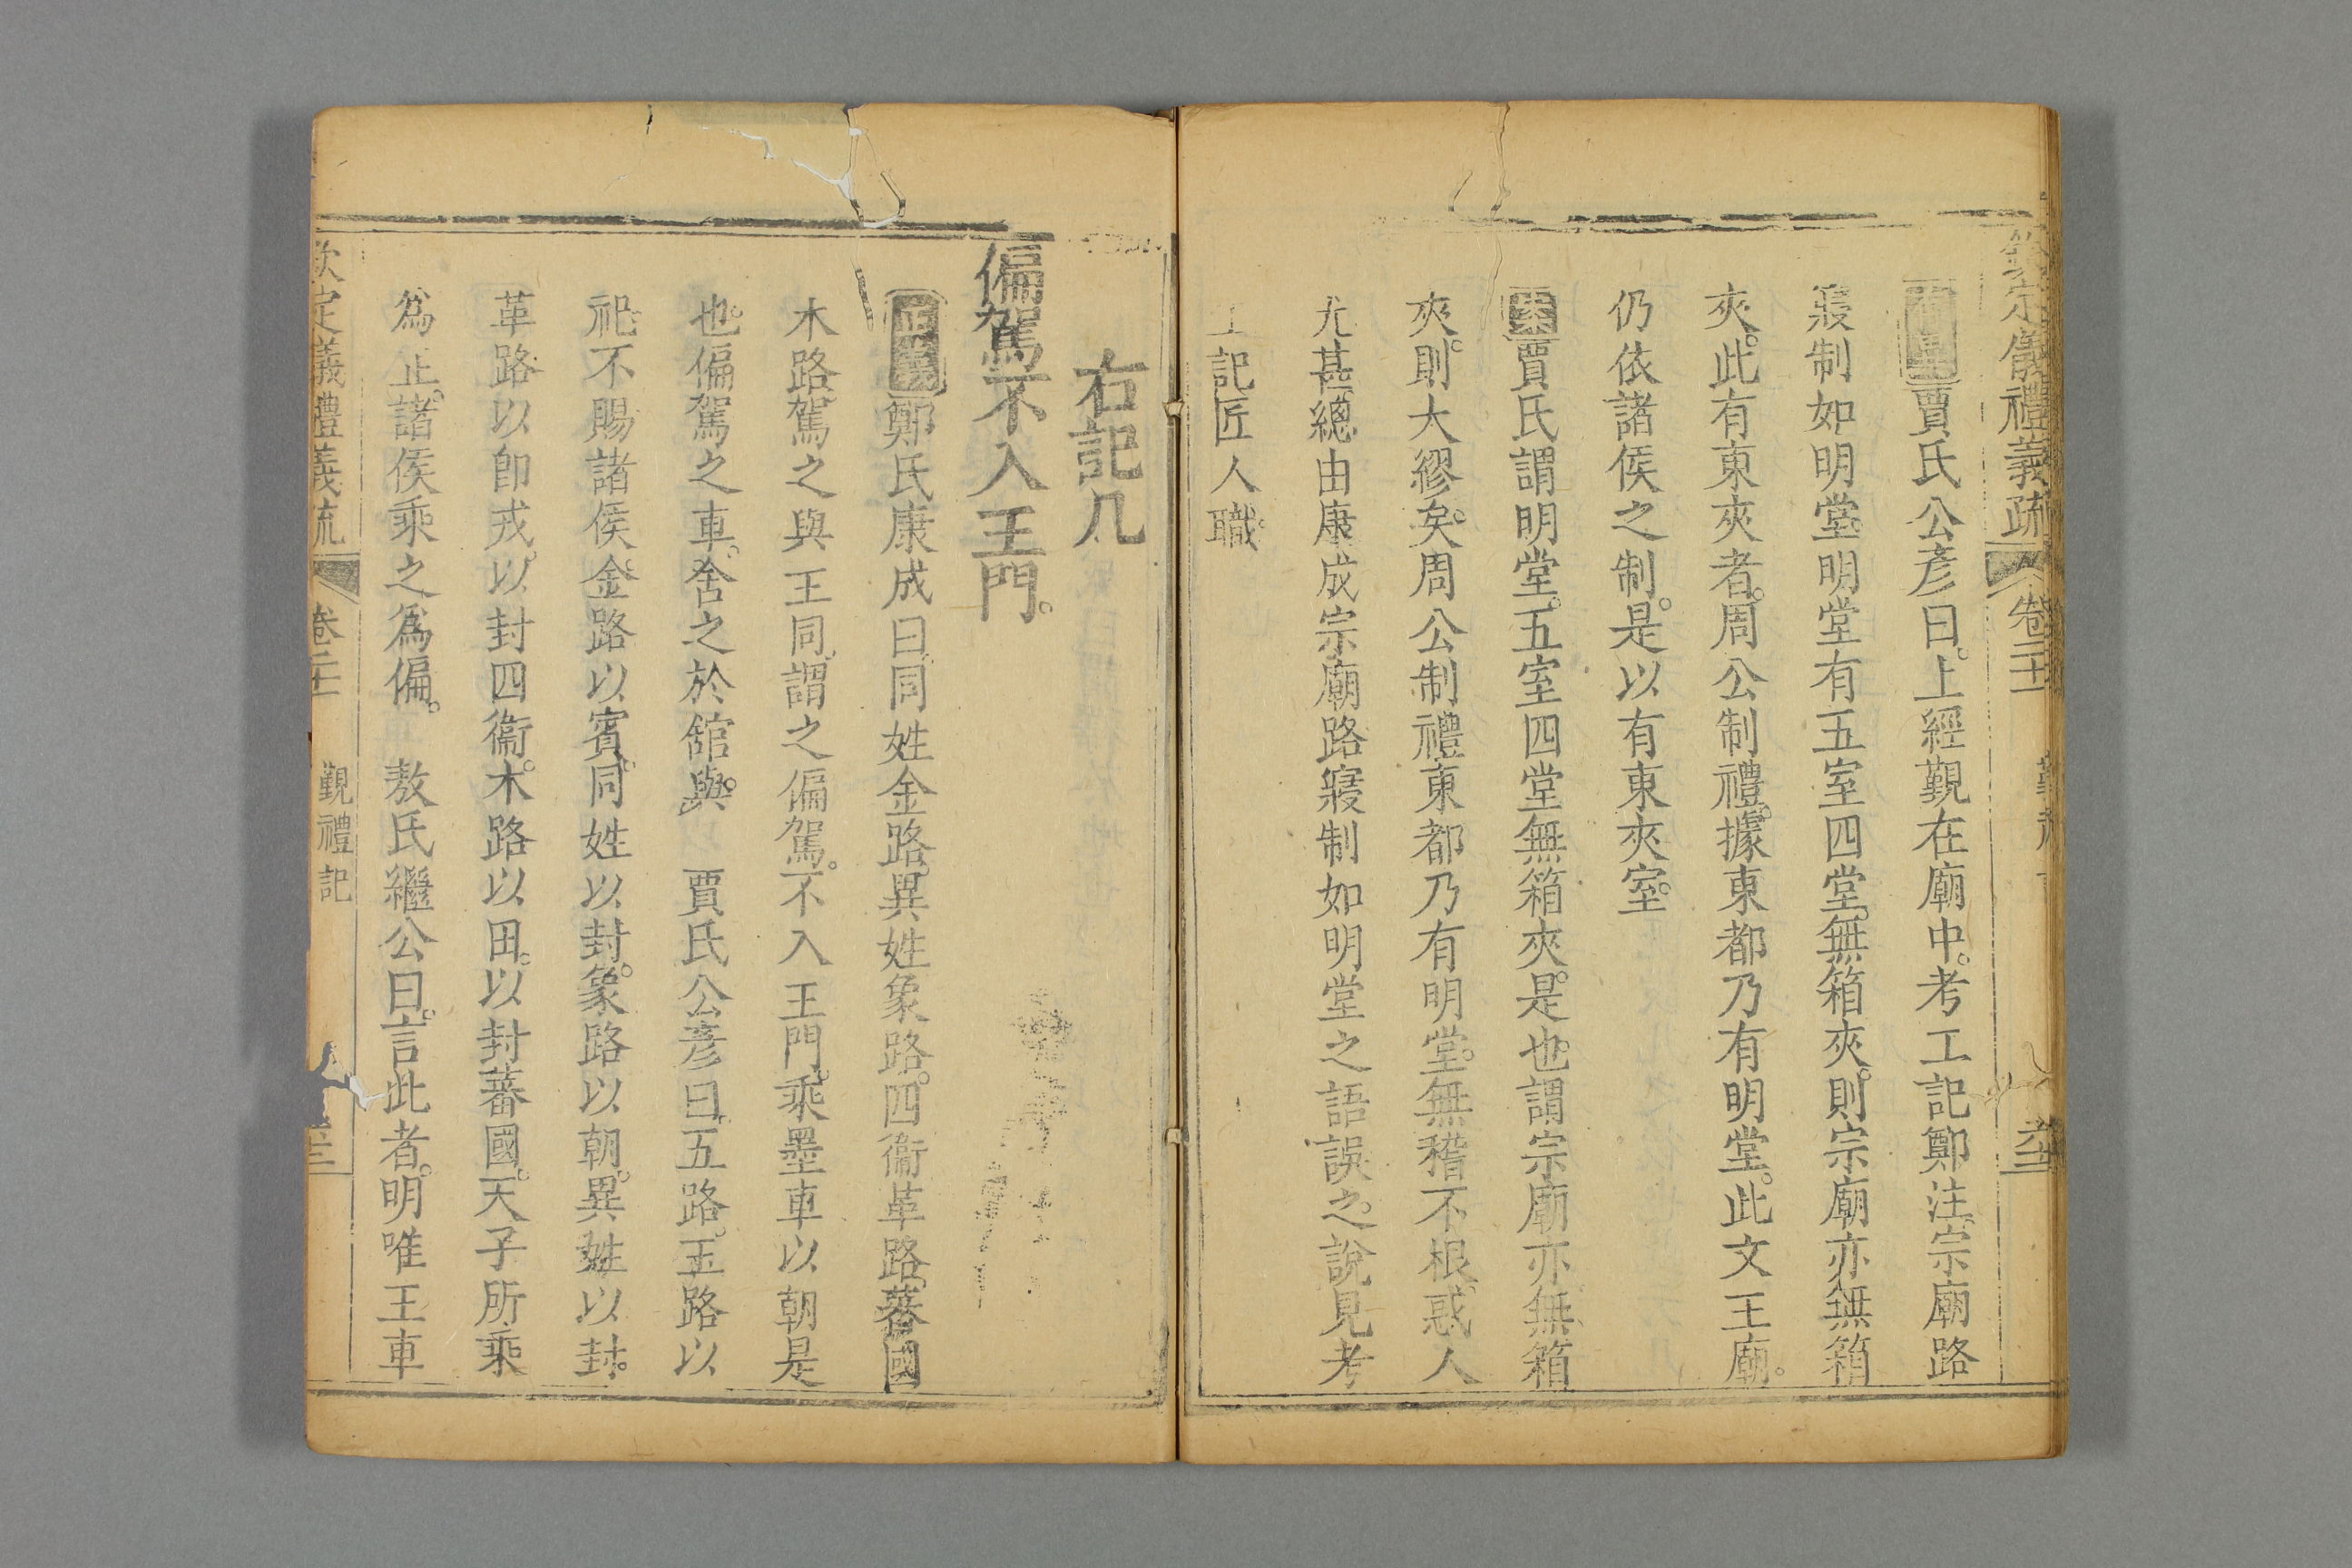 欽定儀禮義疏 卷二十一 覲禮 六十三
存疑賈氏公彥曰上經覲在廟中考工記鄭注宗廟路
寢制如明堂明堂有五室四堂無箱夾則宗廟亦無箱
夾此有東夾者周公制禮據東都乃有明堂此文王廟
仍依諸侯之制是以有東夾室
案賈氏謂明堂五室四堂無箱夾是也謂宗廟亦無箱
夾則大繆矣周公制禮東都乃有明堂無稽不根惑人
尤甚總由康成宗廟路寢制如明堂之語誤之說見考
工記匠人職
右記几
偏駕不入王門
正義鄭氏康成曰同姓金路異姓象路四衞革路蕃國
木路駕之與王同謂之偏駕不入王門乘墨車以朝是
也偏駕之車舍之於館與 賈氏公彥曰五路玉路以
祀不賜諸侯金路以賓同姓以封象路以朝異姓以封
革路以卽戎以封四衞木路以田以封蕃國天子所乘
爲正諸侯乘之爲偏 敖氏繼公曰言此者明唯王車
欽定儀禮義疏 卷二十一 覲禮記